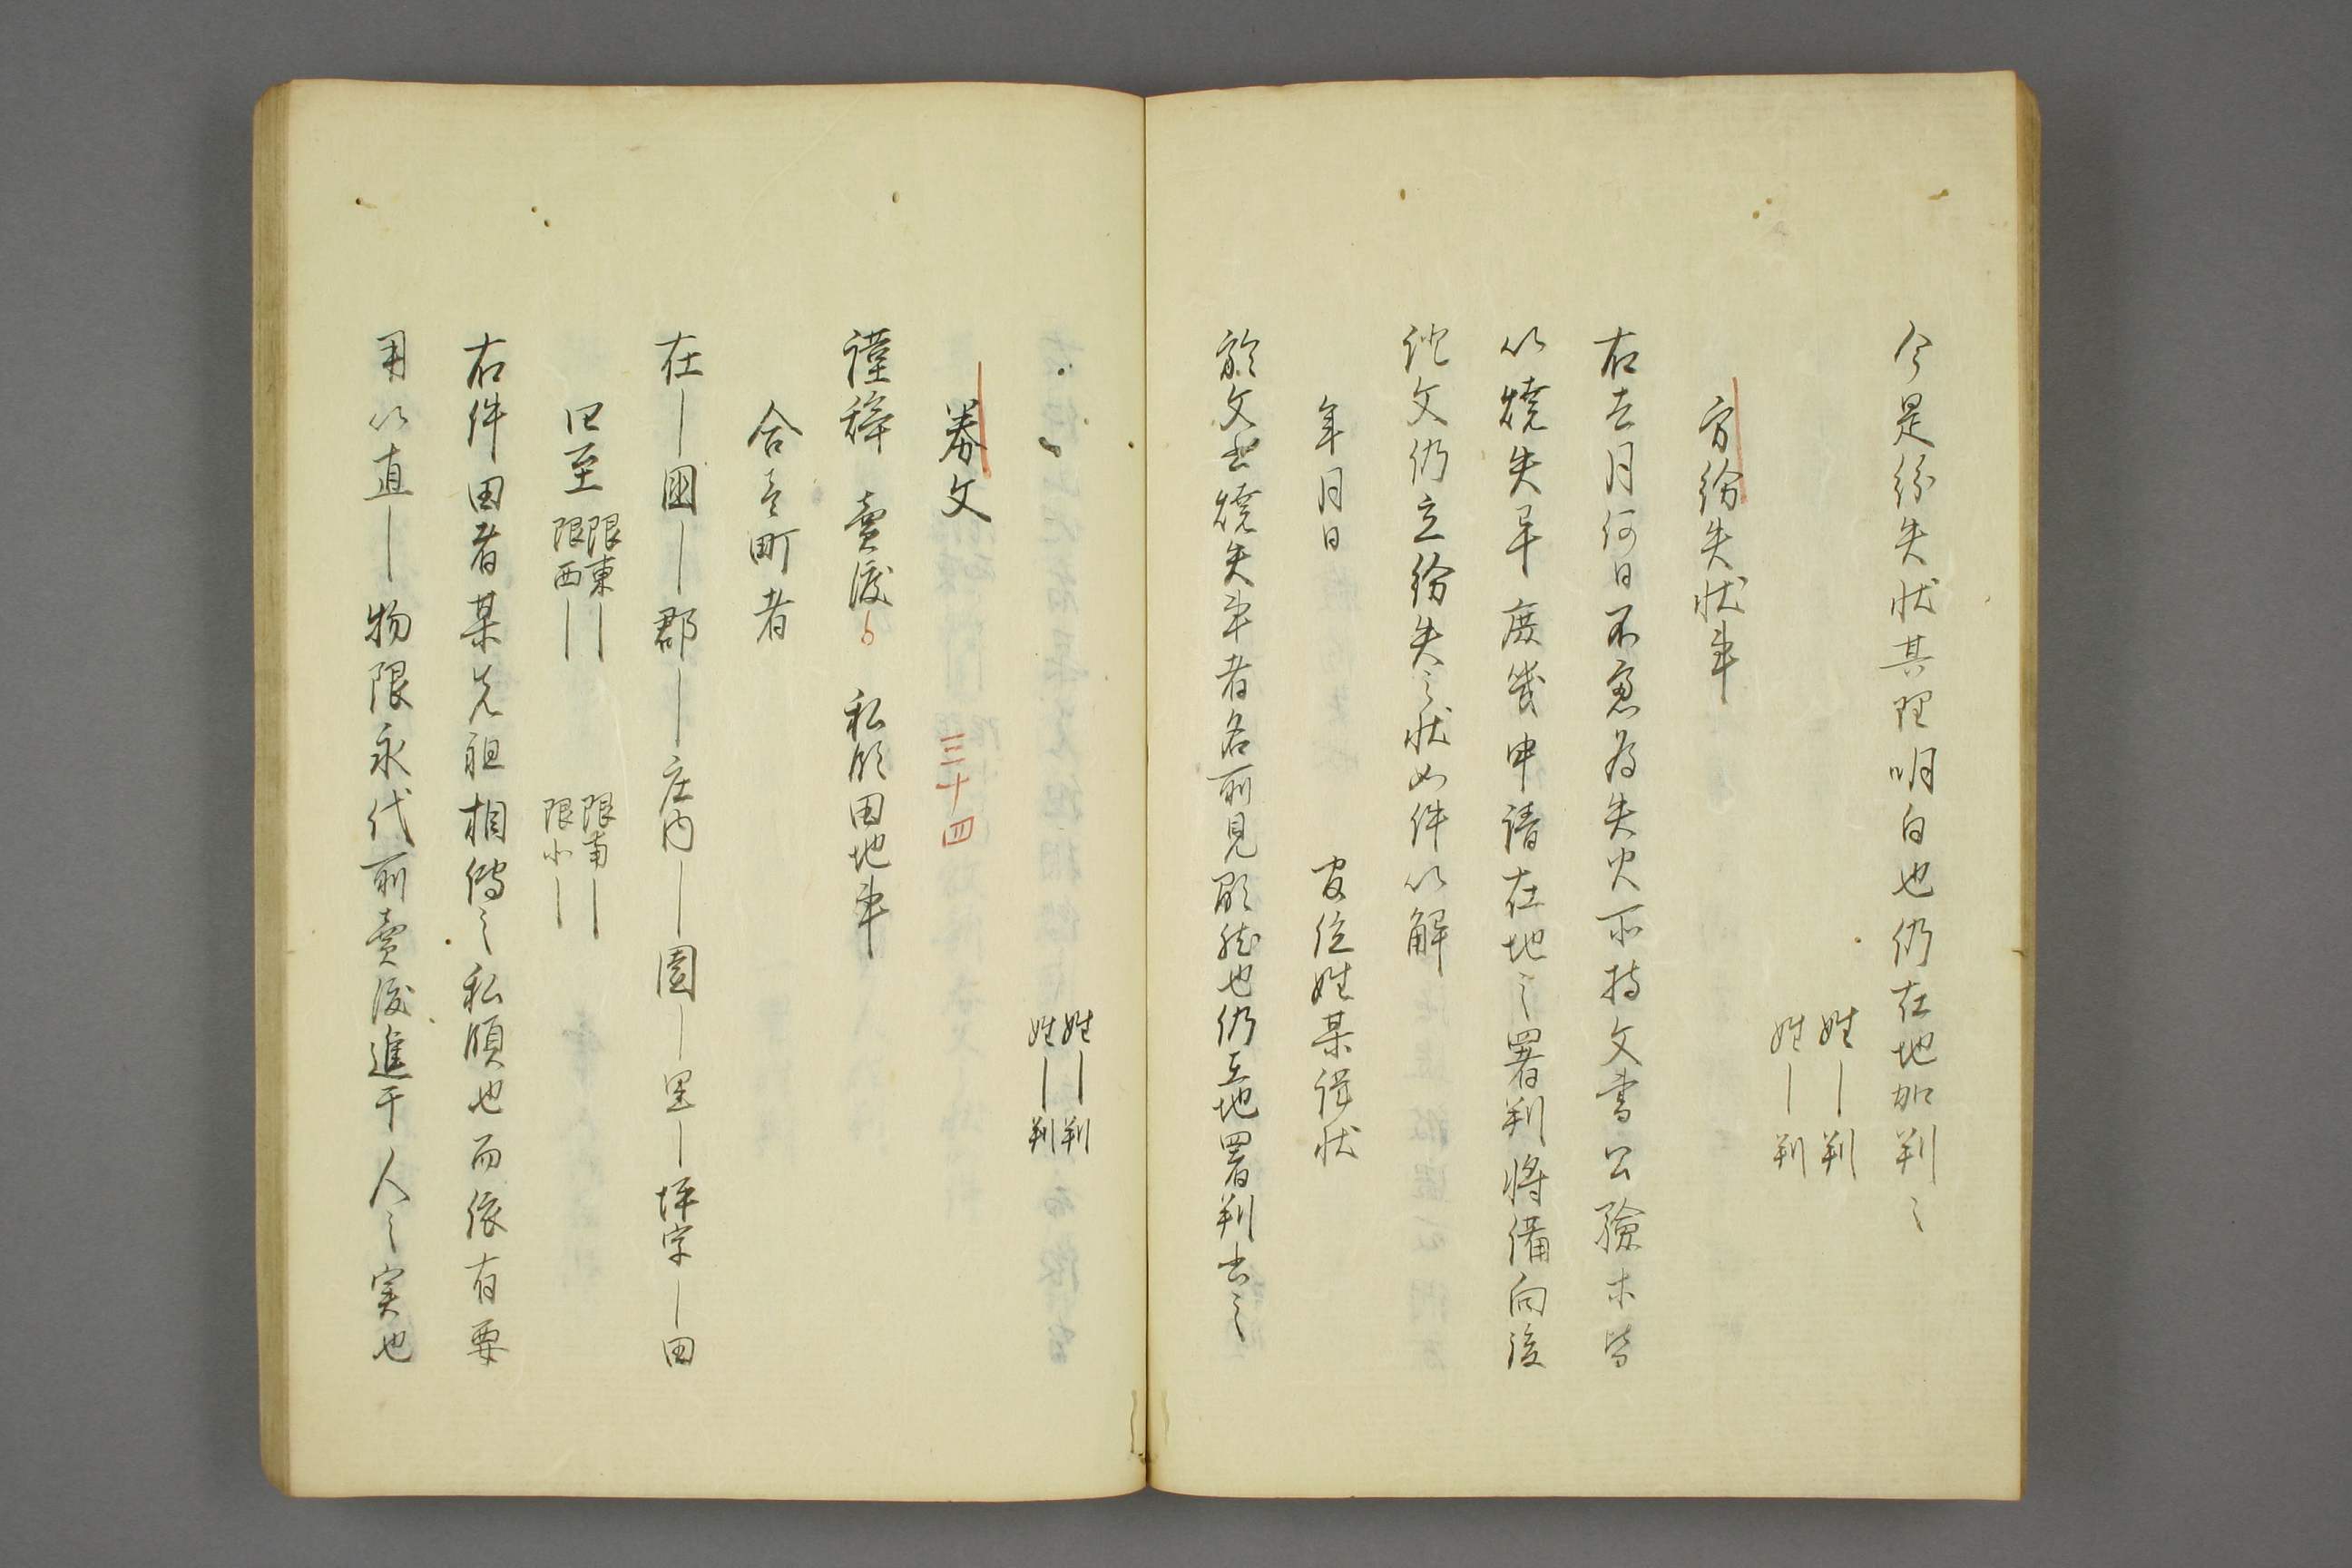 今是紛失状其理明白也仍在地加判之
姓―判
姓―判
紛失状事
右去月何日不慮為失火所持文書公験ホ皆
以焼失畢庶幾申請在地之署判将備向後
証文仍立紛失之状如件以解
年月日 官位姓某謹状
於文書焼失事者各所見顕然也仍在地署判書之
姓―判
姓―判
券文 三十四
謹辞 賣渡 私領田地事
合壱町者
在―国―郡―庄内―図―里―坪字―田
四至 限東― 限南―
限西― 限北―
右件田者某先祖相傳之私領也而依有要
用以直―物限永代所賣渡進于人之実也